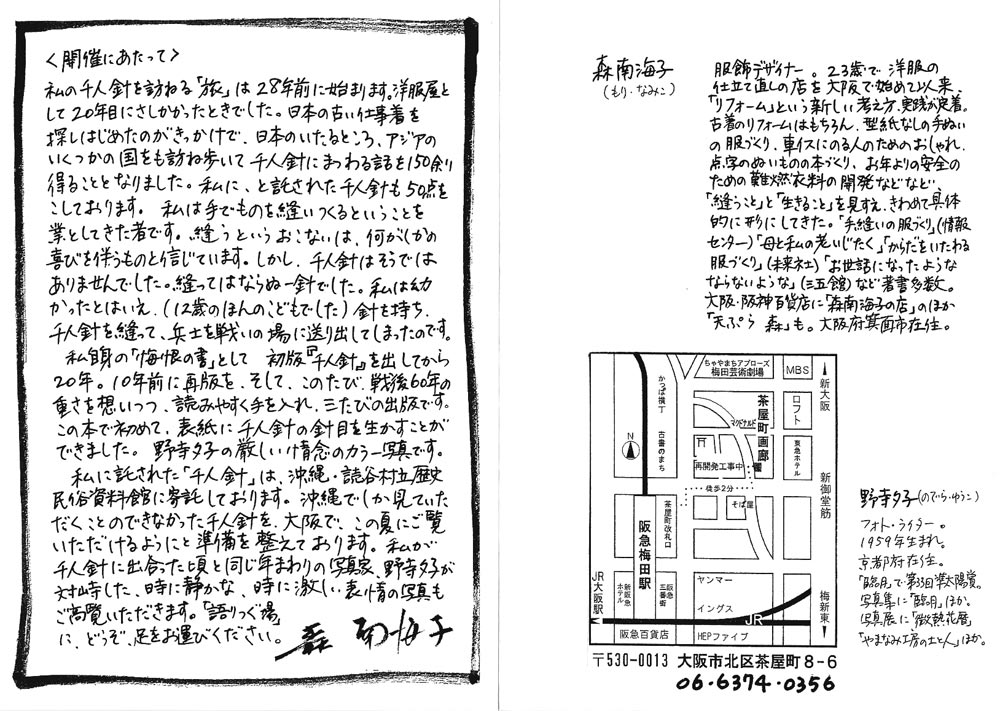 〈開催にあたって〉
私の千人針を訪ねる「旅」は28年前に始まります。洋服屋と
して20年目にさしかかったときでした。日本の古い仕事着を
探しはじめたのがきっかけで、日本のいたるところ、アジアの
いくつかの国をも訪ね歩いて千人針にまつわる話を150余り
得ることとなりました。私に、と託された千人針も50点を
こしております。私は手でものを縫いつくるということを
業としてきた者です。縫うというおこないは、何がしかの
喜びを伴うものと信じています。しかし、千人針はそうでは
ありませんでした。縫ってはならぬ一針でした。私は幼
かったとはいえ、(12歳のほんのこどもでした)針を持ち、
千人針を縫って、兵士を戦いの場に送り出してしまったのです。
私自身の「悔恨の書」として 初版『千人針』を出してから
20年。10年前に再版を、そして、このたび、戦後60年の
重さを想いつつ、読みやすく手を入れ、三たびの出版です。
この本で初めて、表紙に千人針の針目を生かすことが
できました。野寺夕子の厳しい情念のカラー写真です。
私に託された「千人針」は、沖縄・読谷村立歴史
民俗資料館に寄託しております。沖縄でしか見ていた
だくことのできなかった千人針を、大阪で、この夏にご覧
いただけるようにと準備を整えております。私が
千人針に出会った頃と同じ年まわりの写真家、野寺夕子が
対峙した、時に静かな、時に激しい表情の写真も
ご高覧いただきます。「語りつぐ場」
に、どうぞ、足をお運びください。
森 南海子
森南海子
(もり・なみこ)
服飾デザイナー。23歳で洋服の
仕立て直しの店を大阪で始めて以来、
「リフォーム」という新しい考え方、実践が定着。
古着のリフォームはもちろん、型紙なしの手ぬい
の服づくり、車イスにのる人のためのおしゃれ、
点字のぬいものの本づくり、お年よりの安全の
ための難燃衣料の開発などなど、
「縫うこと」と「生きること」を見すえ、きわめて具体
的に形にしてきた。「手縫いの服づくり」(情報
センター)「母と私の老いじたく」「からだをいたわる
服づくり」(未来社)「お世話になったような
ならないような」(三五館)など著書多数。
大阪・阪神百貨店に「森南海子の店」のほか
「天ぷら 森」も。大阪府箕面市在住。
ちゃやまちアプローズ
梅田芸術劇場
MBS
新大阪
かっぱ横丁
茶屋町画廊
ロフト
マクドナルド
N
古書のまち
再開発工事中
東急ホテル
新御堂筋
徒歩2分
そば屋
茶屋町改札口
阪急梅田駅
JR大阪駅
新阪急ホテル
阪急三番街
ヤンマー
イングス
梅新東
JR
阪急百貨店
HEPファイブ
〒530-0013 大阪市北区茶屋町8-6
06・6374・0356
野寺夕子(のでら・ゆうこ)
フォト・ライター。
1959年生まれ。
京都府在住。
「臨月」で第33回準太陽賞。
写真集に「臨月」ほか。
写真展に「微熱花展」
「やまなみ工房の土と人」ほか。